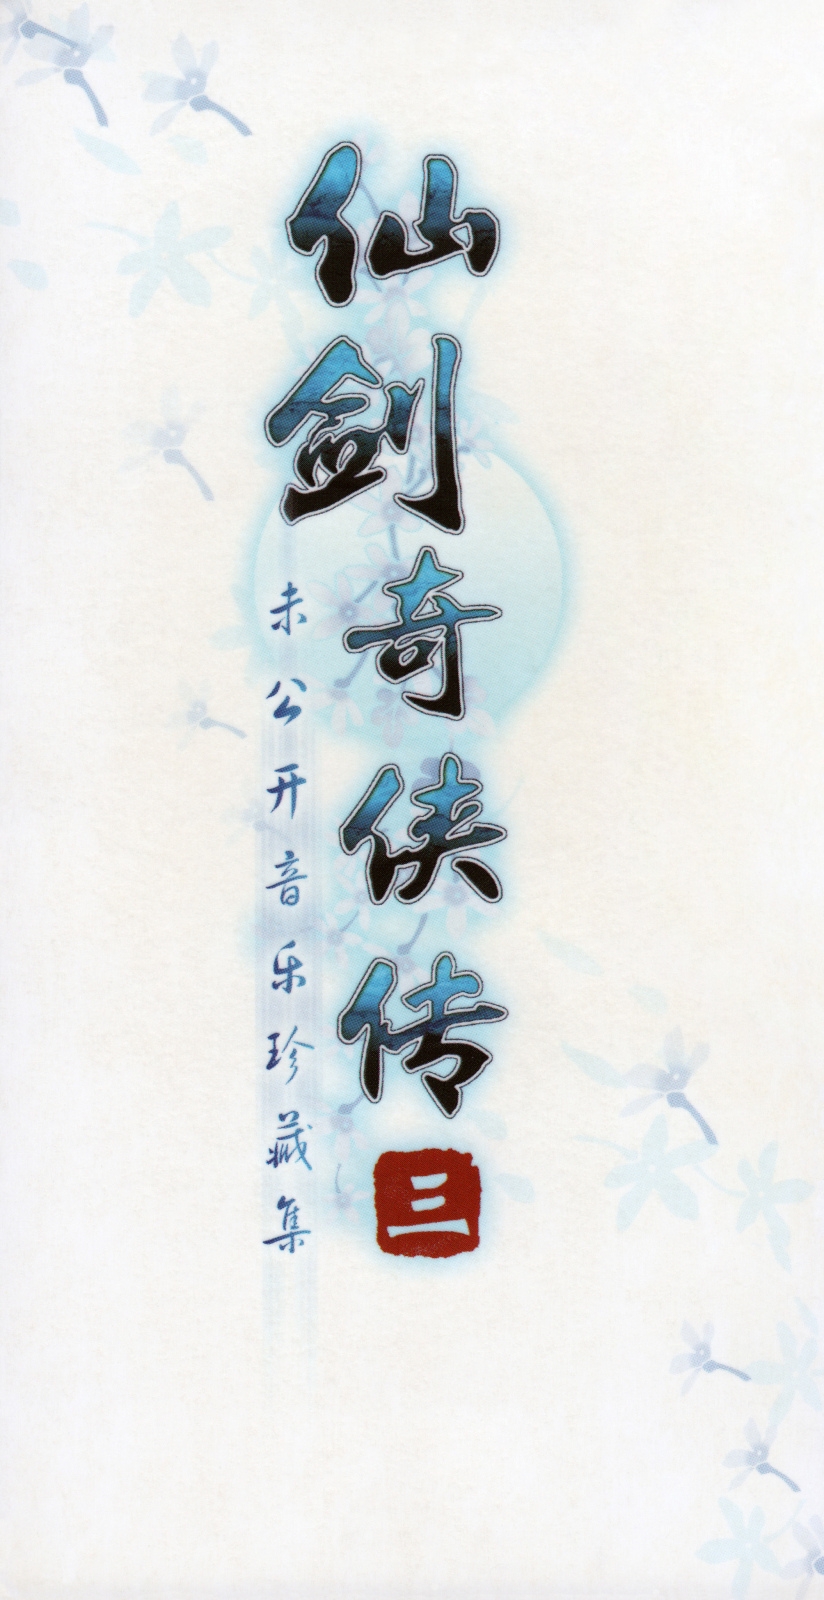 仙剑奇侠传
三
未公开音乐珍藏集